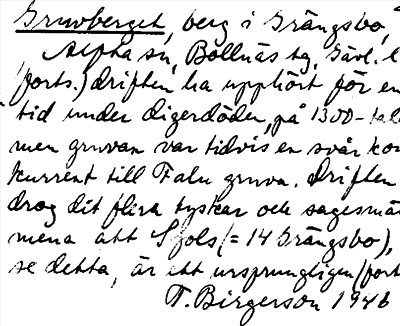 Gruvberget, berg i Grängsbo,
Alfta sn, Bollnäs tg, Gävl. l
(forts.) driften ha upphört för en
tid under digerdöden, på 1300-tal
men gruvan var tidvis en svår kon
kurrent till Falu gruva. Driften
drog dit flira tyskar och sagesmän
mena att Sjols (= 14 Grängsbo),
se detta, är ett ursprungligen (fort
T. Birgerson 1946